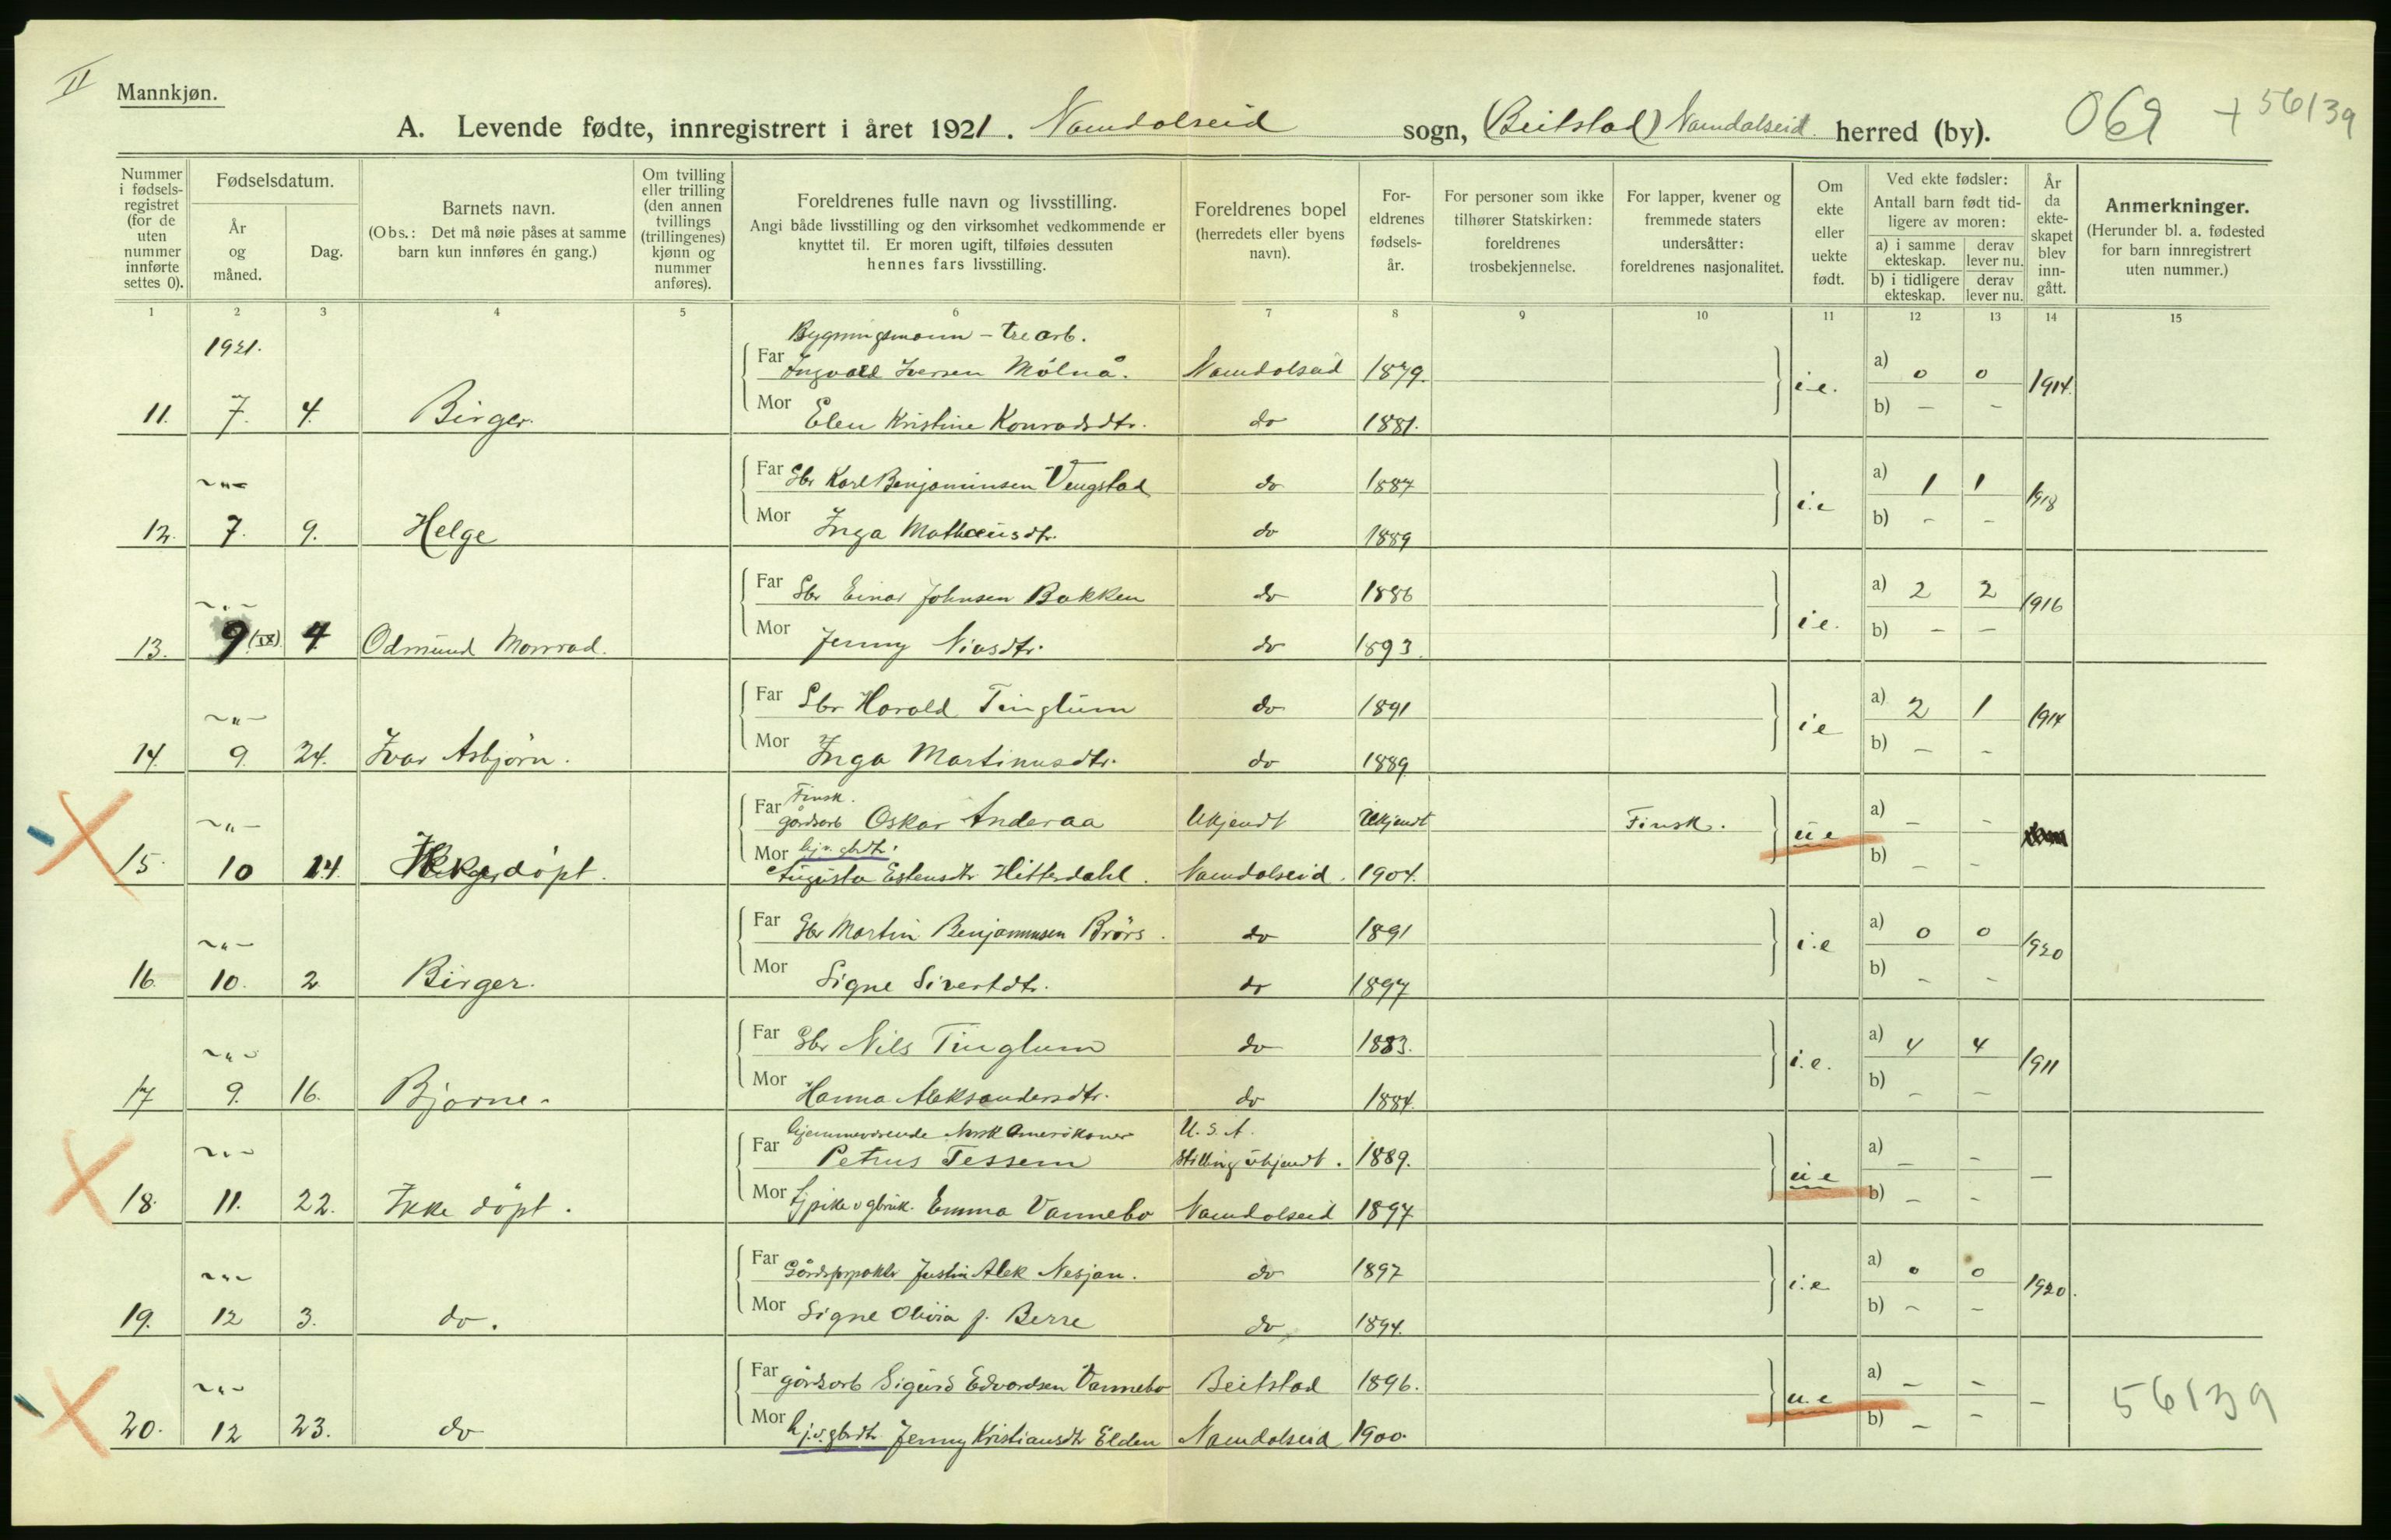 II
Mannkjøn.
A. Levende fødte, innregistrert i året 1921. Namdalseid sogn, (Beitstad) Namdalseid herred (by). 069 + 56139
Nummer i fødsels- registret (for de uten nummer innførte settes 0).
Fødselsdatum.
År og måned.
Dag.
Barnets navn.
(Obs.: Det må nøie påses at samme barn kun innføres én gang.)
Om tvilling eller trilling (den annen tvillings (trillingenes) kjønn og nummer anføres).
Foreldrenes fulle navn og livsstilling.
Angi både livsstilling og den virksomhet vedkommende er knyttet til. Er moren ugift, tilføies dessuten hennes fars livsstilling.
Foreldrenes bopel (herredets eller byens navn).
For- eldrenes fødsels- år.
For personer som ikke tilhører Statskirken: foreldrenes trosbekjennelse.
For lapper, kvener og fremmede staters undersåtter: foreldrenes nasjonalitet.
Om ekte eller uekte født.
Ved ekte fødsler:
Antall barn født tid- ligere av moren:
a) i samme ekteskap. derav lever nu.
b) i tidligere ekteskap. derav lever nu.
År da ekte- skapet blev inn- gått.
Anmerkninger.
(Herunder bl. a. fødested for barn innregistrert uten nummer.)
1 2 3 4 5 6 7 8 9 10 11 12 13 14 15
1921. Bygningsmann - tre arb.
Far Ingvald Iversen Mølnå. Namdalseid 1879. i.e. a) 0 0 1914.
11. 7. 4. Birger. Mor Elen Kristine Konradsdtr. do 1881. b) - -
~"~ Far Gbr Karl Benjaminsen Vengstad do 1887 i.e a) 1 1 1918
12. 7. 9. Helge Mor Inga Matheusdtr. do 1889 b) - -
~"~ Far Gbr Einar Johnsen Bakken do 1886 i.e. a) 2 2 1916
13. 9 (IX) 4 Odmund Monrad. Mor Jenny Niasdtr. do 1893. b) - -
~"~ Far Gbr Harald Tinglum do 1891 i e a) 2 1 1914
14. 9. 24. Ivar Asbjørn. Mor Inga Martinusdtr. do 1889 b) - -
Finsk.
~"~ Far gårdsarb Oskar Anderaa Ukjendt Ukjendt Finsk. u e a) - -
15. 10 14. døpt. Mor hj. v. gbdtr. Augusta Estensdtr Hitterdahl. Namdalseid. 1904. b) - -
~"~ Far Gbr Martin Benjaminsen Brørs. do 1891 i.e a) 0 0 1920
16. 10. 2 Birger. Mor Signe Sivertdtr. do 1897 b) - -
~"~ Far Gbr Nils Tinglum do 1883. i.e. a) 4 4 1911
17 9. 16. Bjarne. Mor Hanna Aleksandersdtr. do 1884. b) - -
hjemmeværende Norsk Amerikaner U. S. A.
~"~ Far Petrus Tessem Stilling ukjendt. 1889. u e a) - - -
18. 11. 22. Ikke døpt. Mor tjpike v gbruk. Emma Vannebo Namdalseid 1897 b) - -
~"~ Far Gårdsforpakter Justin Alek Nesjan. do 1897 i.e a) 0 0 1920.
19. 12 3. do. Mor Signe Olivia f. Berre do 1894. b) - -
~"~ Far gårdsarb Sigurd Edvardsen Vannebo Beitstad 1896. u.e a) - - - 56139
20. 12 23. do Mor hj.v.gbrdtr Jenny Kristiansdtr Elden Namdalseid 1900. b) - -